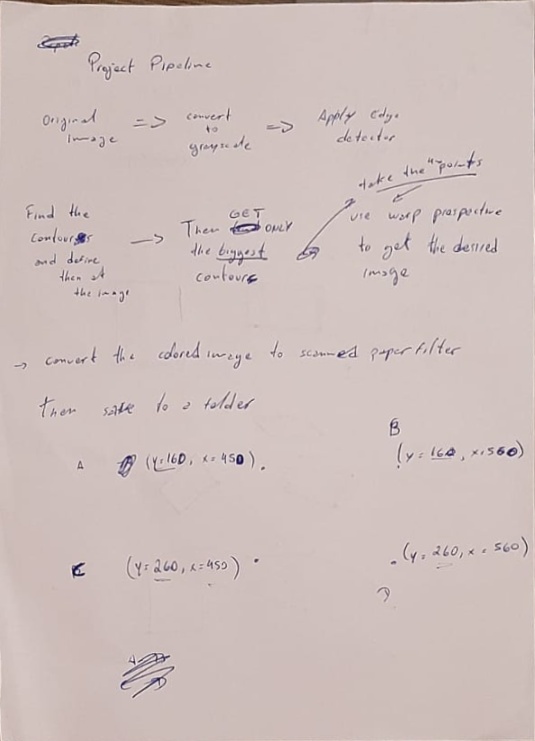 Project Pipeline
Original image => convert to grayscale => Apply Edge detector
take the 4 points
Find the contours and define them at the image → Then GET ONLY the biggest contours
use warp prespective to get the desired image
→ convert the colored image to scanned paper filter
Then save to a folder
A (y=160, x=450).
B (y=160, x=560)
C (y=260, x=450)
(y=260, x=560)